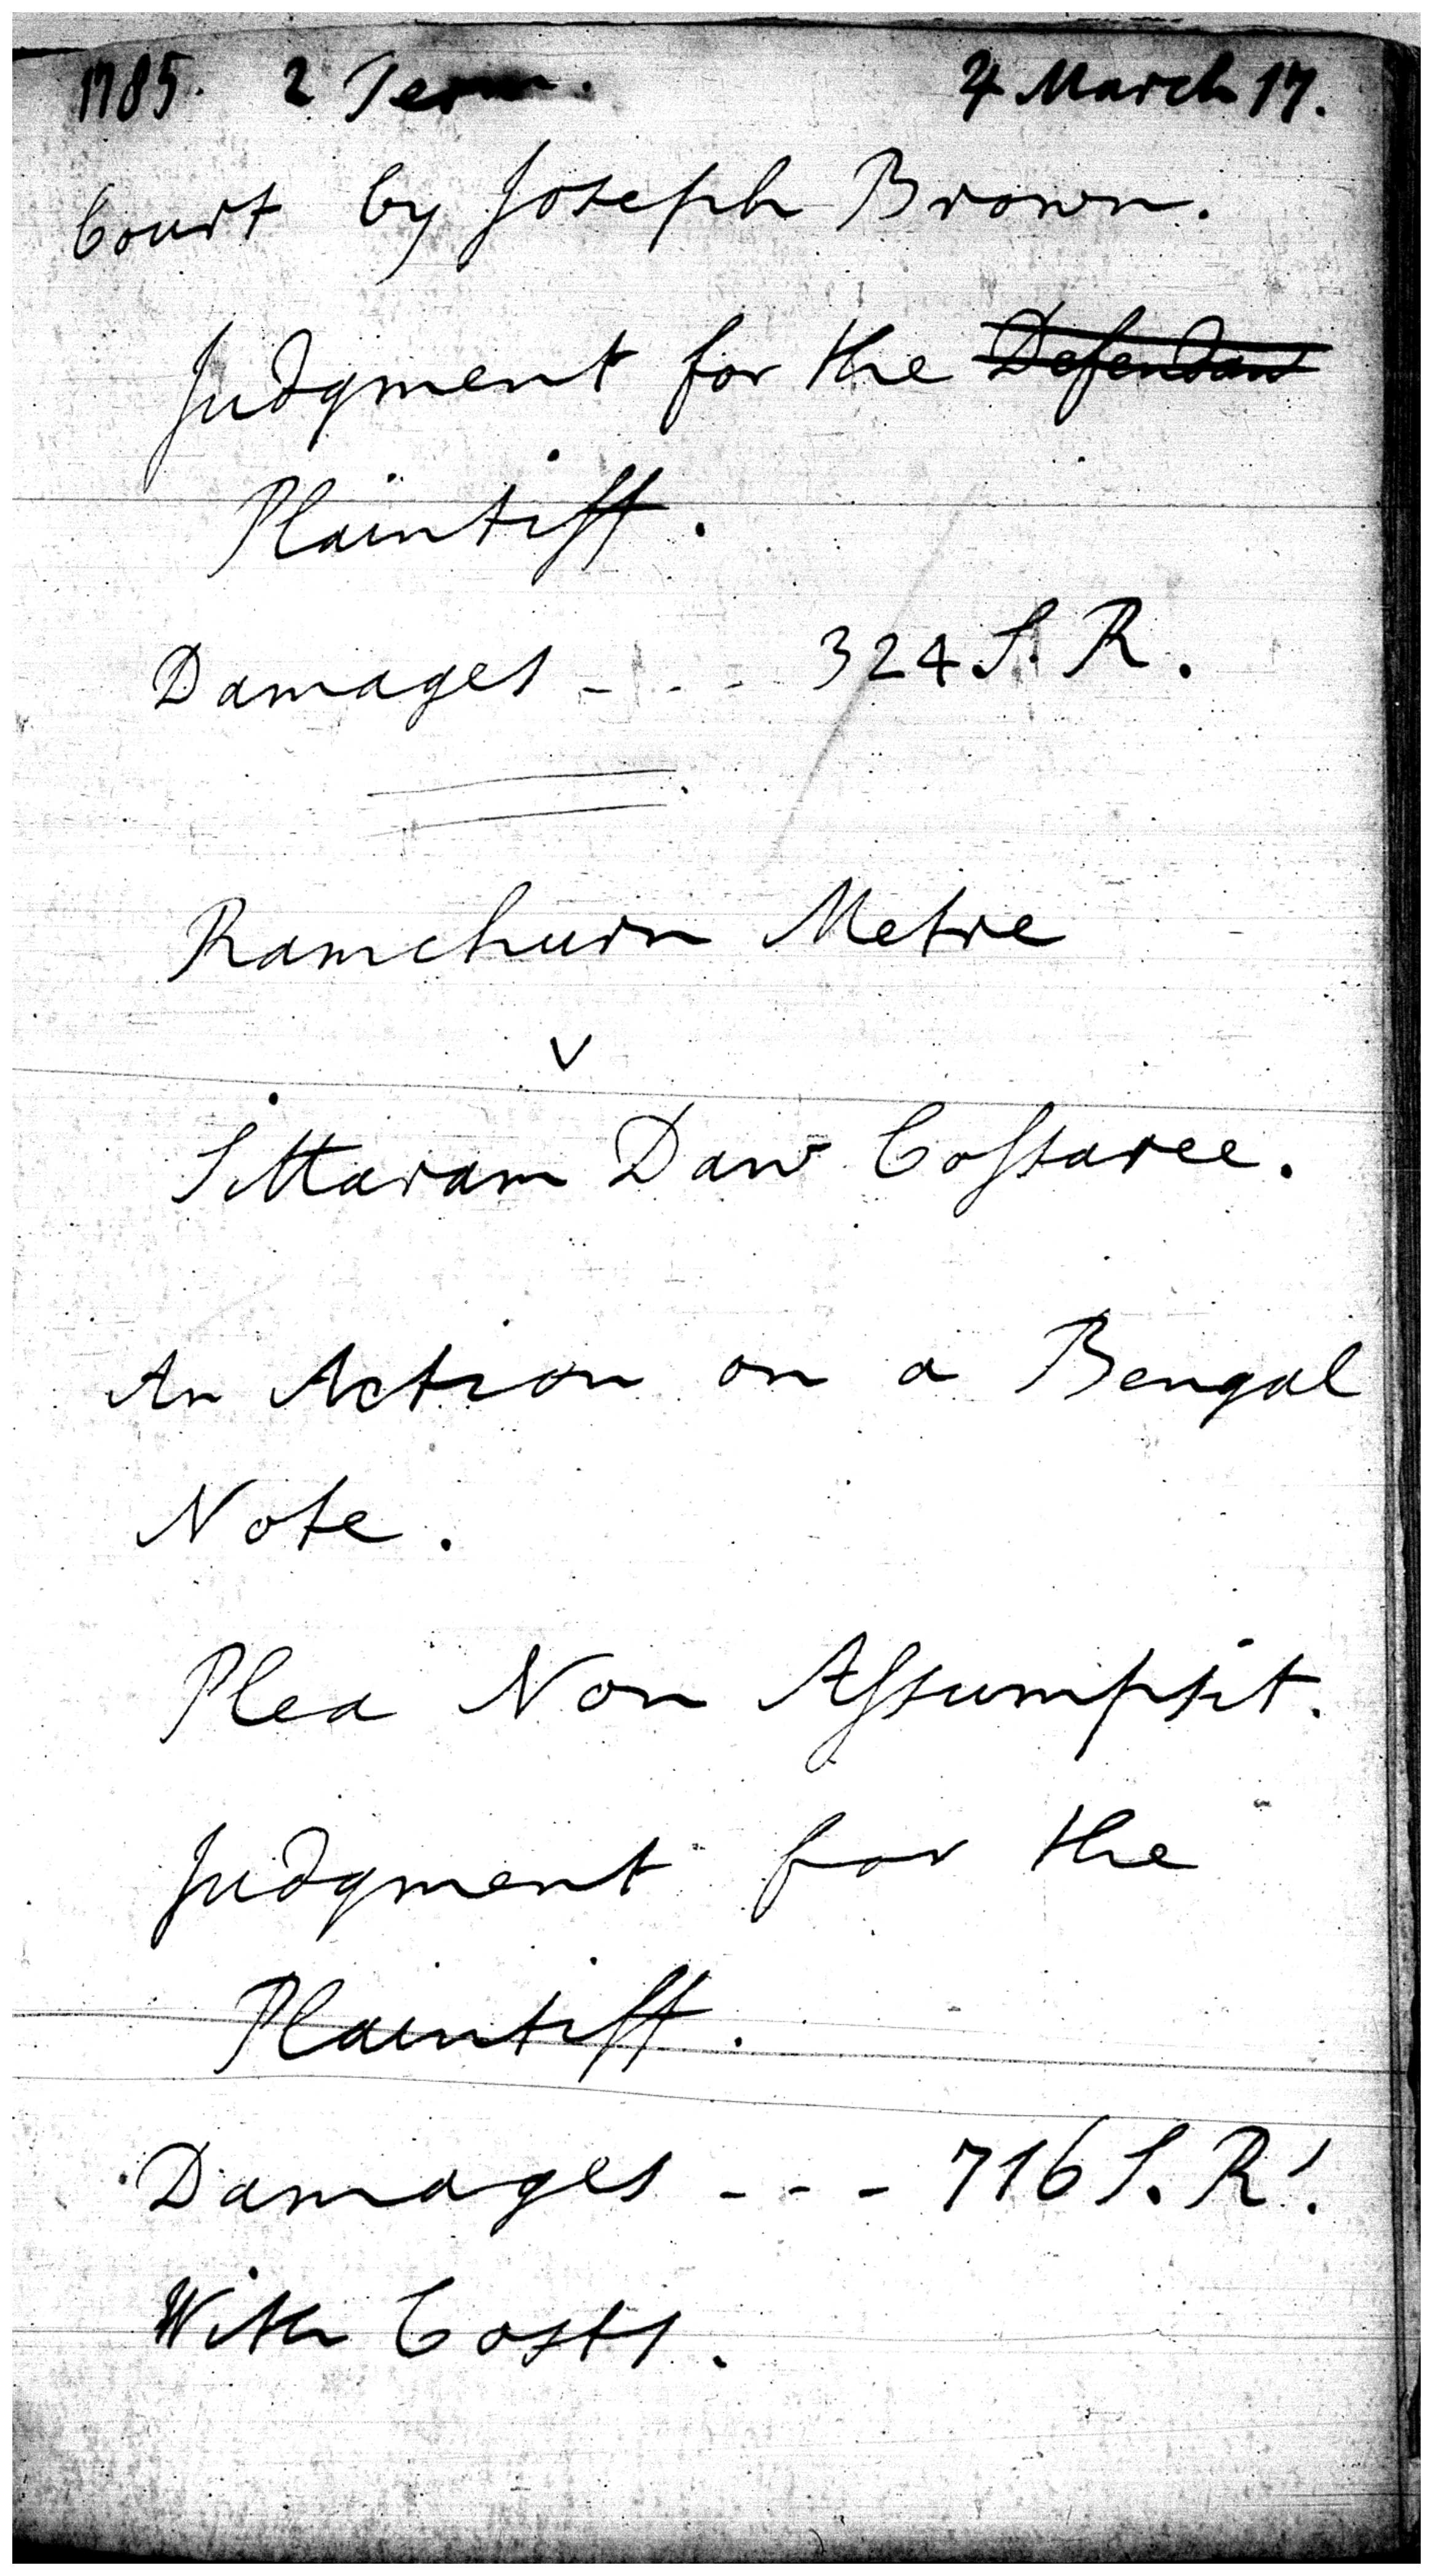 1785. 2 Term. 4 March 17.
Court by Joseph Brown.
Judgment for the Defendant
Plaintiff.
Damages - - - 324 S. R.
Ramchurn Metre
v
Sittaram Daw Coſsaree.
An Action on a Bengal
Note.
Plea Non Aſsumpsit.
Judgment for the
Plaintiff.
Damages - - - 716 S. R.
With Costs.